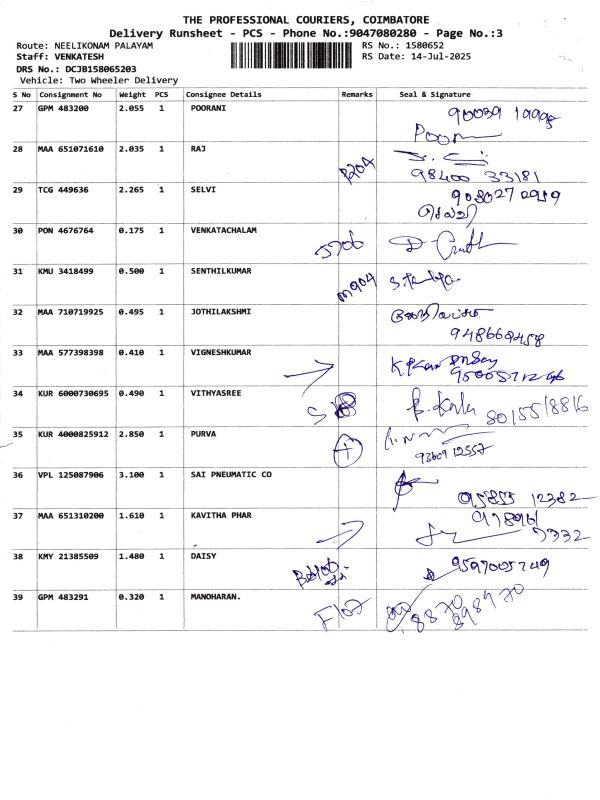 THE PROFESSIONAL COURIERS, COIMBATORE
Delivery Runsheet - PCS - Phone No.:9047080280 - Page No.:3
Route: NEELIKONAM PALAYAM RS No.: 1580652
Staff: VENKATESH RS Date: 14-Jul-2025
DRS No.: DCJB158065203
Vehicle: Two Wheeler Delivery
S No Consignment No Weight PCS Consignee Details Remarks Seal & Signature
27 GPM 483200 2.055 1 POORANI
28 MAA 651071610 2.035 1 RAJ
98400 33181
29 TCG 449636 2.265 1 SELVI
செல்வி
30 PON 4676764 0.175 1 VENKATACHALAM
31 KMU 3418499 0.500 1 SENTHILKUMAR M904
32 MAA 710719925 0.495 1 JOTHILAKSHMI
33 MAA 577398398 0.410 1 VIGNESHKUMAR
34 KUR 6000730695 0.490 1 VITHYASREE
8015518816
35 KUR 4000825912 2.850 1 PURVA
9360912557
36 VPL 125087906 3.100 1 SAI PNEUMATIC CO
95855 12382
37 MAA 651310200 1.610 1 KAVITHA PHAR
38 KMY 21385509 1.480 1 DAISY
9597005749
39 GPM 483291 0.320 1 MANOHARAN.
8870
898970